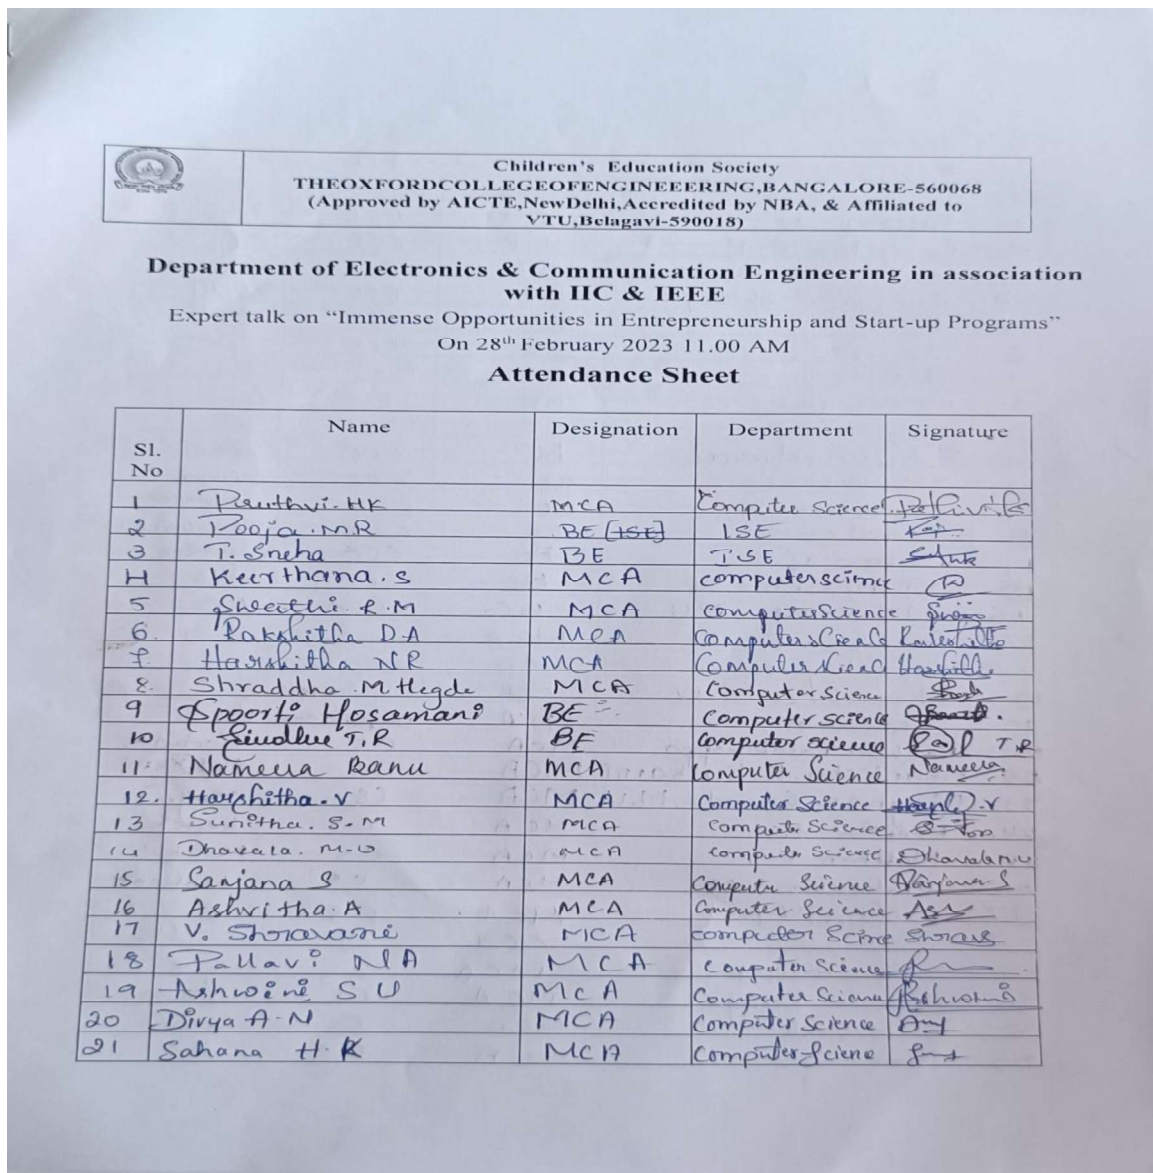 Children's Education Society
THEOXFORDCOLLEGEOFENGINEEERING,BANGALORE-560068
(Approved by AICTE,NewDelhi,Accredited by NBA, & Affiliated to
VTU,Belagavi-590018)
Department of Electronics & Communication Engineering in association
with IIC & IEEE
Expert talk on “Immense Opportunities in Entrepreneurship and Start-up Programs”
On 28th February 2023 11.00 AM
Attendance Sheet
Sl. No Name Designation Department Signature
1 Pruthvi. HK MCA Computer Science
2 Pooja. M.R BE ISE
3 T. Sneha BE ISE
4 Keerthana. S MCA computer science
5 Sweathi R.M MCA computer Science
6. Rakshitha D.A MCA Computer science
7. Harshitha NR MCA Computer science
8. Shraddha. M. Hegde MCA Computer Science
9 Spoorti Hosamani BE Computer science
10 Sindhu T.R BE computer science T.R
11. Nameera Banu MCA Computer Science Nameera
12. Harshitha. V MCA Computer Science
13 Sunitha. S. M MCA Computer Science
14 Dhavala. M. U MCA Computer Science Dhavala M.U
15 Sanjana S MCA Computer Science Sanjana. S
16 Ashwitha. A MCA Computer Science
17 V. Shravani MCA computer Science
18 Pallavi N A MCA Computer Science
19 Ashwini S U MCA Computer Science Ashwini
20 Divya A. N MCA Computer Science
21 Sahana H. K MCA Computer Science